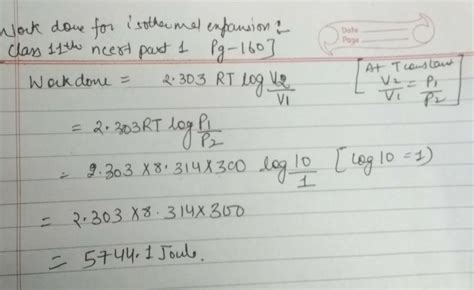 Work done for isothermal expansion :-
Date
Page
Class 11th ncert part 1 Pg-160]
Workdone = 2.303 RT log V2/V1 [At T constant V2/V1 = P1/P2]
= 2.303RT log P1/P2
= 2.303 x 8.314 x 300 log 10/1 [log 10 = 1)
= 2.303 x 8.314 x 300
= 5744.1 Joule.